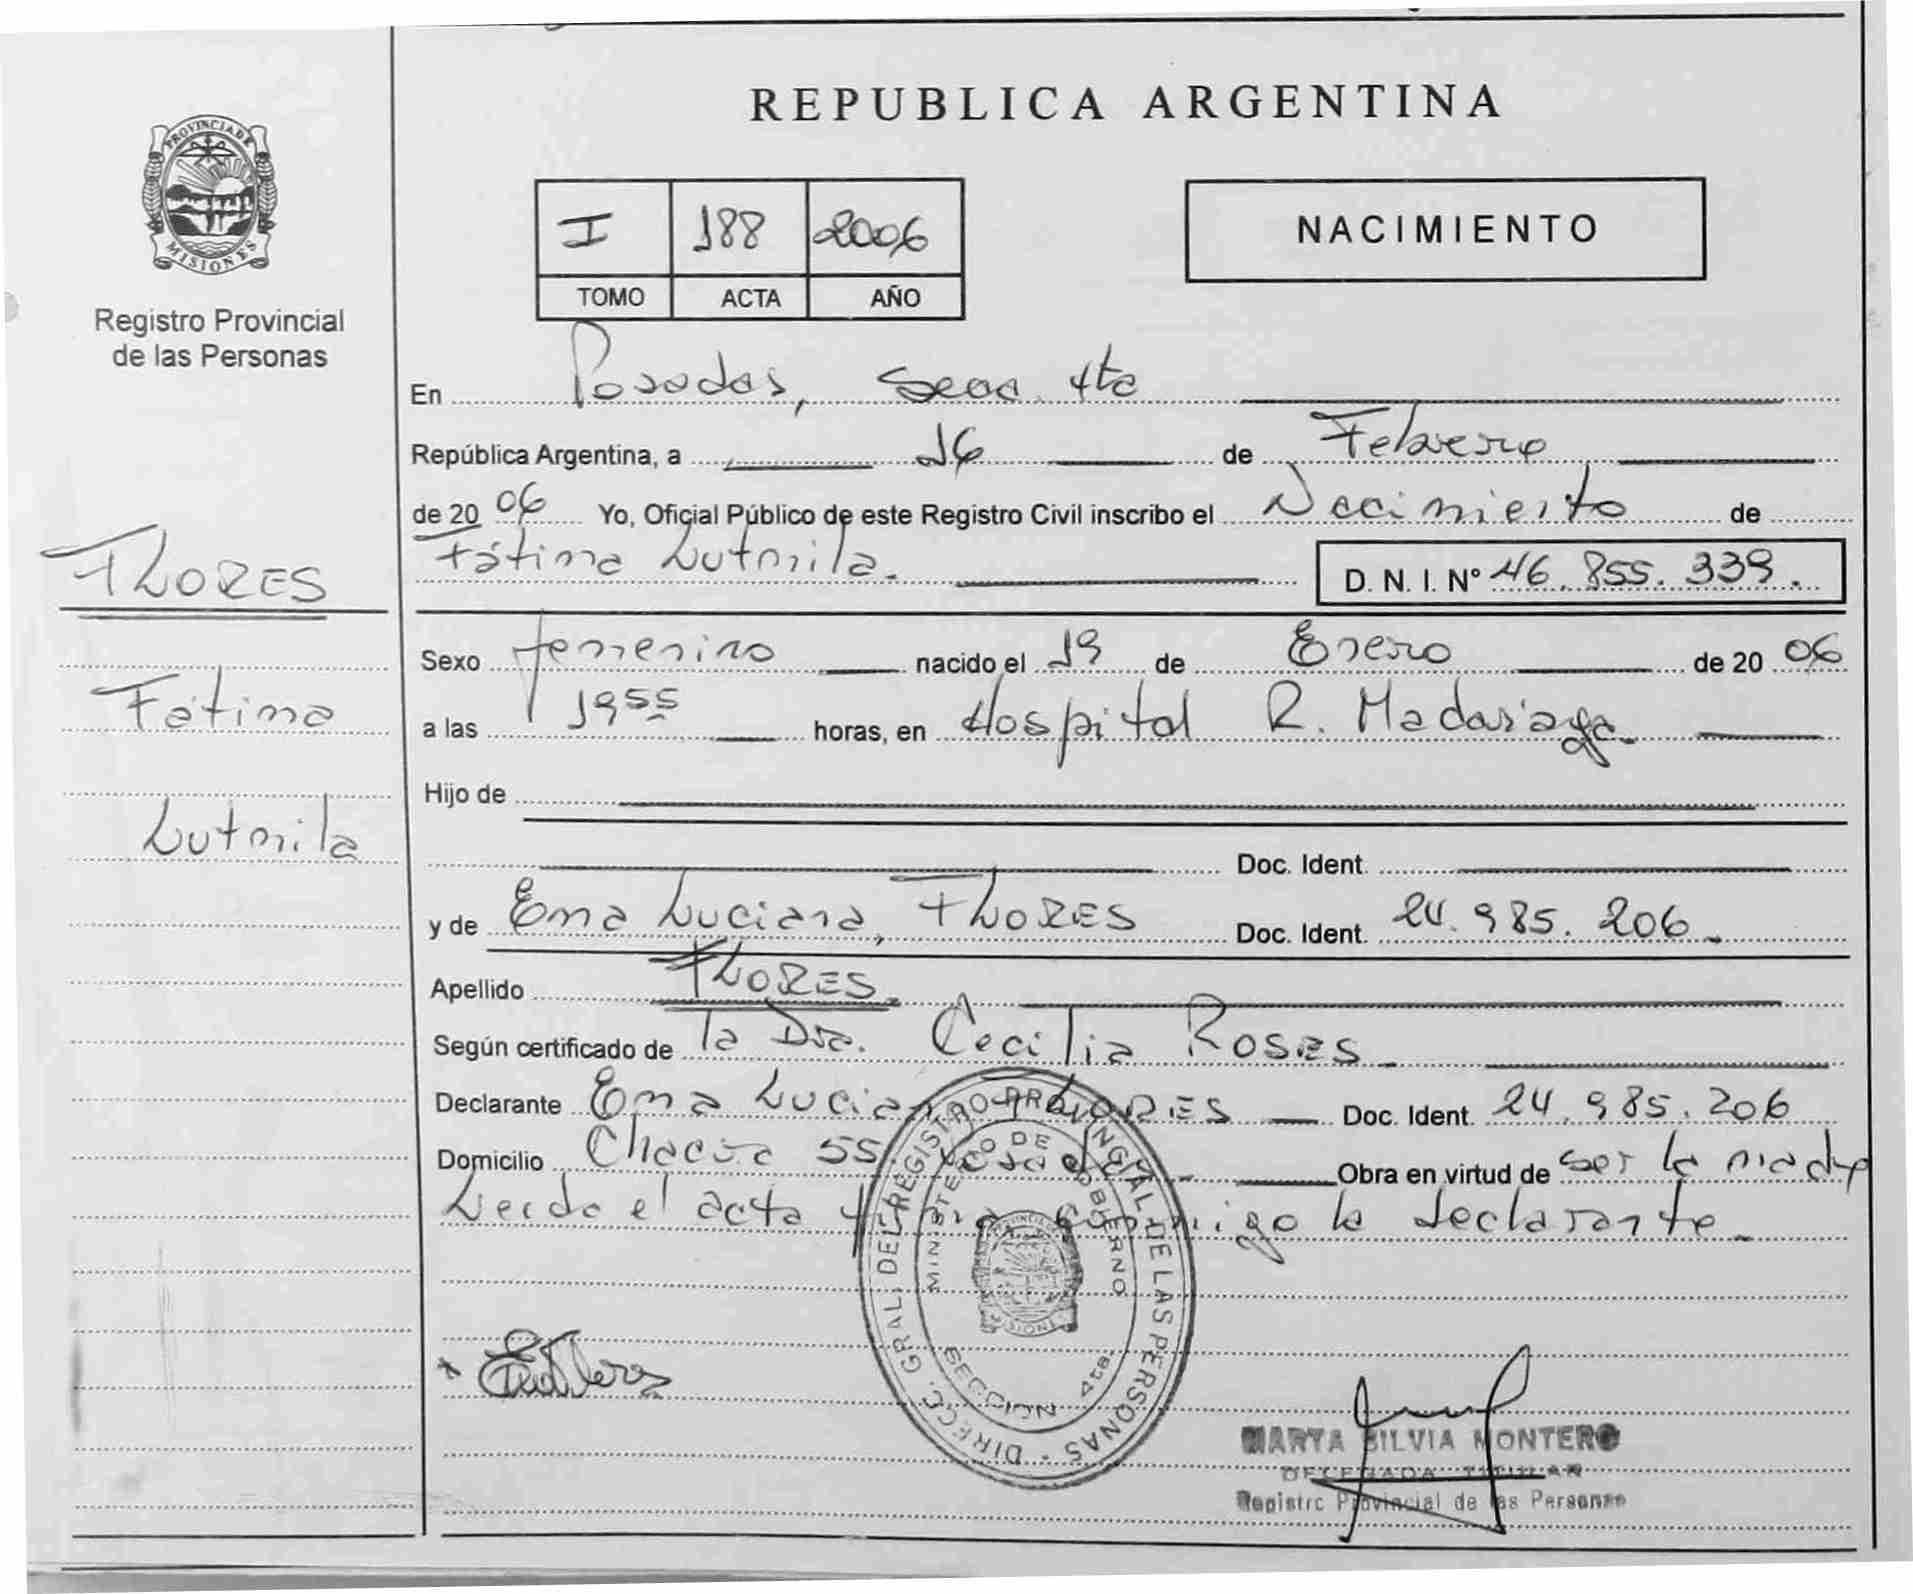 PROVINCIA DE
MISIONES
Registro Provincial
de las Personas
FLORES
Fátima
Lutmila
REPUBLICA ARGENTINA
I 188 2006
TOMO ACTA AÑO
NACIMIENTO
En Posadas, Secc. 4ta
República Argentina, a 16 de Febrero
de 2006 Yo, Oficial Público de este Registro Civil inscribo el Nacimiento de
Fátima Lutmila.
D. N. I. Nº 46.855.339.
Sexo femenino nacido el 19 de Enero de 2006
a las 19 55 horas, en Hospital R. Madariaga.
Hijo de
Doc. Ident.
y de Ema Luciana, FLORES Doc. Ident. 24.985.206.
Apellido FLORES.
Según certificado de la Dra. Cecilia Roses.
Declarante Ema Luciana FLORES Doc. Ident. 24.985.206
Domicilio Chacra 55 Posadas Obra en virtud de ser la madre
Leida el acta firma conmigo la declarante.
DIRECC. GRAL. DEL REGISTRO PROVINCIAL DE LAS PERSONAS
MINISTERIO DE GOBIERNO
SECCION 4ta
MARTA SILVIA MONTERO
DELEGADA TITULAR
Registro Provincial de las Personas